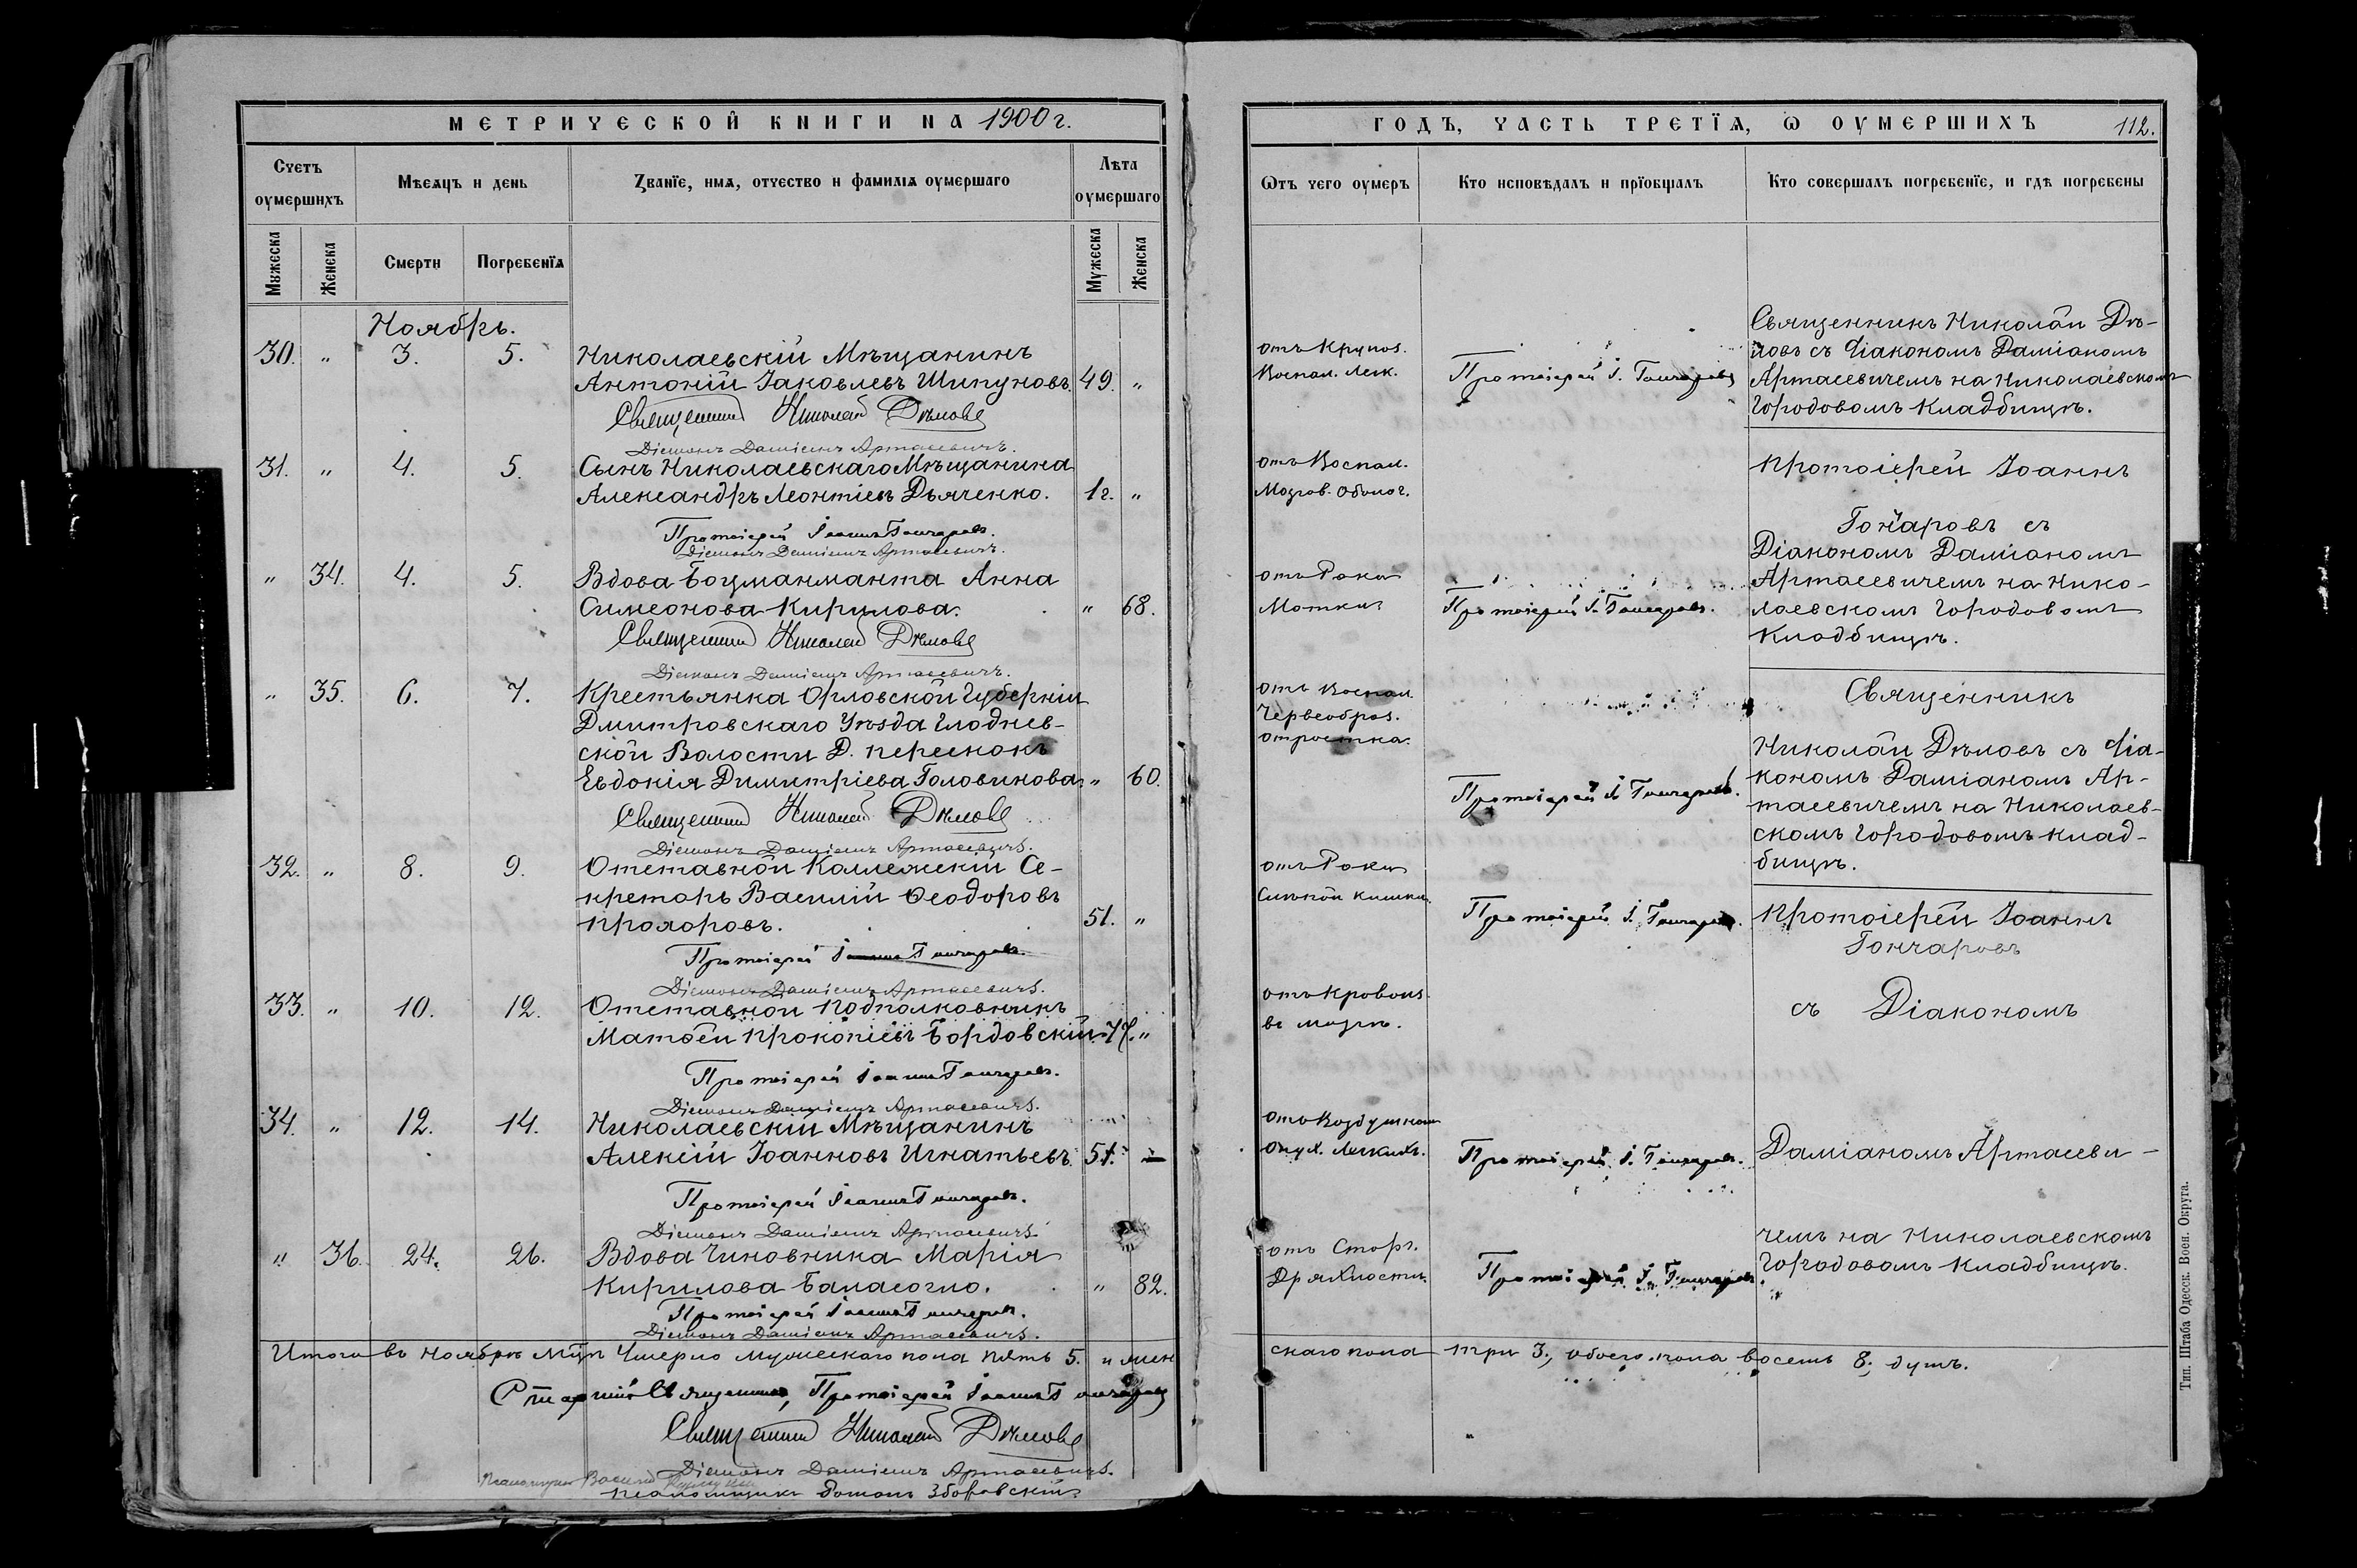 МЕТРИЧЕСКОЙ КНИГИ НА 1900 г.
Счетъ оумершихъ
Мѣсяцъ и день
Званїе, имя, отчество и фамилїя оумершаго
Лѣта оумершаго
Мужеска
Женска
Смерти
Погребенїя
Мужеска
Женска
Ноябрь.
30. " 3. 5. Николаевскій Мѣщанинъ
Антоній Іаковлевъ Шипуновъ. 49. "
Священникъ Николай Дѣловъ
Діаконъ Даміанъ Артасевичъ.
31. " 4. 5. Сынъ Николаевскаго Мѣщанина
Александръ Леонтіевъ Дьяченко. 1 г. "
Протоіерей Іоаннъ Гончаровъ.
Діаконъ Даміанъ Артасевичъ.
" 34. 4. 5. Вдова Боцманманта Анна
Симеонова Кирилова. " 68.
Священникъ Николай Дѣловъ
Діаконъ Даміанъ Артасевичъ.
" 35. 6. 7. Крестьянка Орловской Губерніи
Дмитровскаго Уѣзда Глоднев-
ской Волости Д. Перескокъ
Евдокія Димитріева Головинова. " 60.
Священникъ Николай Дѣловъ
Діаконъ Даміанъ Артасевичъ.
32. " 8. 9. Отставной Коллежскій Се-
кретарь Василій Ѳеодоровъ
Прохоровъ. 51. "
Протоіерей Іоаннъ Гончаровъ.
Діаконъ Даміанъ Артасевичъ.
33. " 10. 12. Отставной Подполковникъ
Матѳей Прокопіевъ Бордовскій. "
Протоіерей Іоаннъ Гончаровъ.
Діаконъ Даміанъ Артасевичъ.
34. " 12. 14. Николаевскій Мѣщанинъ
Алексій Іоанновъ Игнатьевъ. 51. —
Протоіерей Іоаннъ Гончаровъ.
Діаконъ Даміанъ Артасевичъ.
" 36. 24. 26. Вдова Чиновника Марія
Кирилова Баласогло. " 82.
Протоіерей Іоаннъ Гончаровъ.
Діаконъ Даміанъ Артасевичъ.
Итого въ Ноябрѣ Мцѣ Умерло мужескаго пола пять 5. и жен
Старшій Священникъ, Протоіерей Іоаннъ Гончаровъ
Священникъ Николай Дѣловъ
Діаконъ Даміанъ Артасевичъ.
Псаломщикъ Василій
Псаломщикъ Зборовскій
ГОДЪ, ЧАСТЬ ТРЕТЇЯ, Ѡ ОУМЕРШИХЪ 112.
Ѿтъ чего оумеръ
Кто исповѣдалъ и прїобщалъ
Кто совершалъ погребенїе, и гдѣ погребены
отъ Крупоз.
Воспал. Легк.
Протоіерей І. Гончаровъ
Священникъ Николай Дѣ-
ловъ съ Діакономъ Даміаномъ
Артасевичемъ на Николаевскомъ
Городовомъ Кладбищѣ.
отъ Воспал.
Мозгов. Оболоч.
Протоіерей Іоаннъ
Гончаровъ съ
Діакономъ Даміаномъ
Артасевичемъ на Нико-
лаевскомъ Городовомъ
Кладбищѣ.
отъ Рака
Матки
Протоіерей І. Гончаровъ.
отъ Воспал.
Червеобраз.
отростка.
Протоіерей І. Гончаровъ.
Священникъ
Николай Дѣловъ съ Діа-
кономъ Даміаномъ Ар-
тасевичемъ на Николаев-
скомъ Городовомъ Клад-
бищѣ.
отъ Рака
Слѣпой кишки.
Протоіерей І. Гончаровъ.
Протоіерей Іоаннъ
Гончаровъ
съ Діакономъ
Даміаномъ Артасеви-
чемъ на Николаевскомъ
Городовомъ Кладбищѣ.
отъ Кровоиз.
въ мозгъ.
отъ
Опух. Легкихъ.
Протоіерей І. Гончаровъ.
отъ Старч.
Дряхлости.
Протоіерей І. Гончаровъ.
скаго пола три 3., обоего пола восемь 8. душъ.
Тип. Штаба Одесск. Воен. Округа.